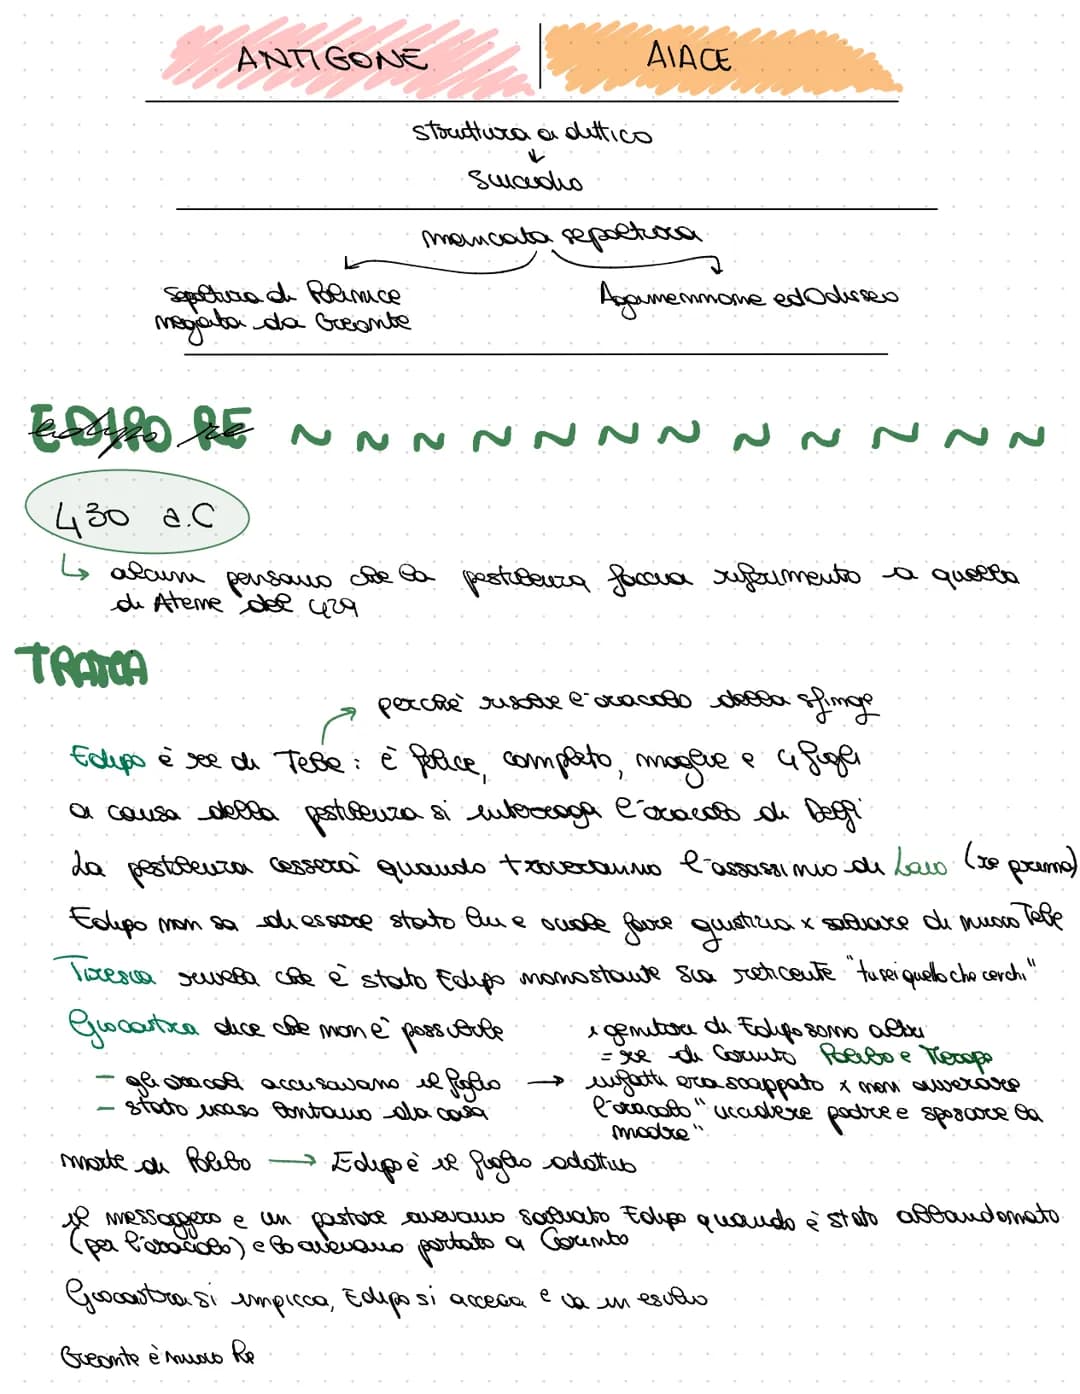 ANTIGONE | AIACE
struttura a dittico
↓
Suicidio
mancata sepoltura
Sepoltura di Polinice
negata da Creonte
Agamennone ed Odisseo
EDIPO RE
edipo re
430 a.C
↳ alcuni pensano che la pestilenza faccia riferimento a quella
di Atene del 429
TRAMA
perchè risolve l'oracolo della sfinge
Edipo è re di Tebe: è felice, completo, moglie e 4 figli
a causa della pestilenza si interroga l'oracolo di Delfi
La pestilenza cesserà quando troveranno l'assassinio di Laio (re prima)
Edipo non sa di essere stato lui e vuole fare giustizia x salvare di nuovo Tebe
Tiresia rivela che è stato Edipo nonostante sia reticente "tu sei quello che cerchi"
Giocastra dice che non è possibile
- gli oracoli accusavano il figlio →
- stato ucciso lontano da casa
i genitori di Edipo sono altri
= re di Corinto Polibo e Merope
infatti era scappato x non avverare
l'oracolo "uccidere padre e sposare la
madre"
morte di Polibo → Edipo è il figlio adottivo
il messaggero e un pastore avevano salvato Edipo quando è stato abbandonato
(per l'oracolo) e lo avevano portato a Corinto
Giocastra si impicca, Edipo si acceca e va in esilio
Creonte è nuovo Re